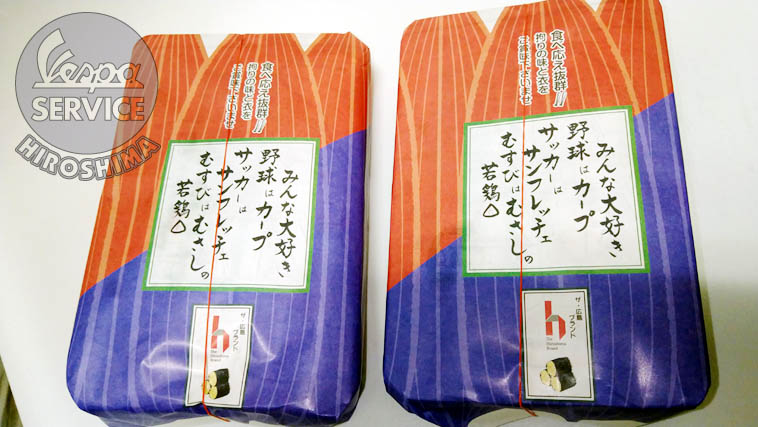 Vespa
SERVICE
HIROSHIMA
食べ応え抜群!!
拘りの味と衣を
ご賞味下さいませ
みんな大好き
野球はカープ
サッカーは
サンフレッチェ
むすびはむさしの
若鶏△
ザ・広島
ブランド
h
The
Hiroshima
Brand
食べ応え抜群!!
拘りの味と衣を
ご賞味下さいませ
みんな大好き
野球はカープ
サッカーは
サンフレッチェ
むすびはむさしの
若鶏△
ザ・広島
ブランド
h
The
Hiroshima
Brand